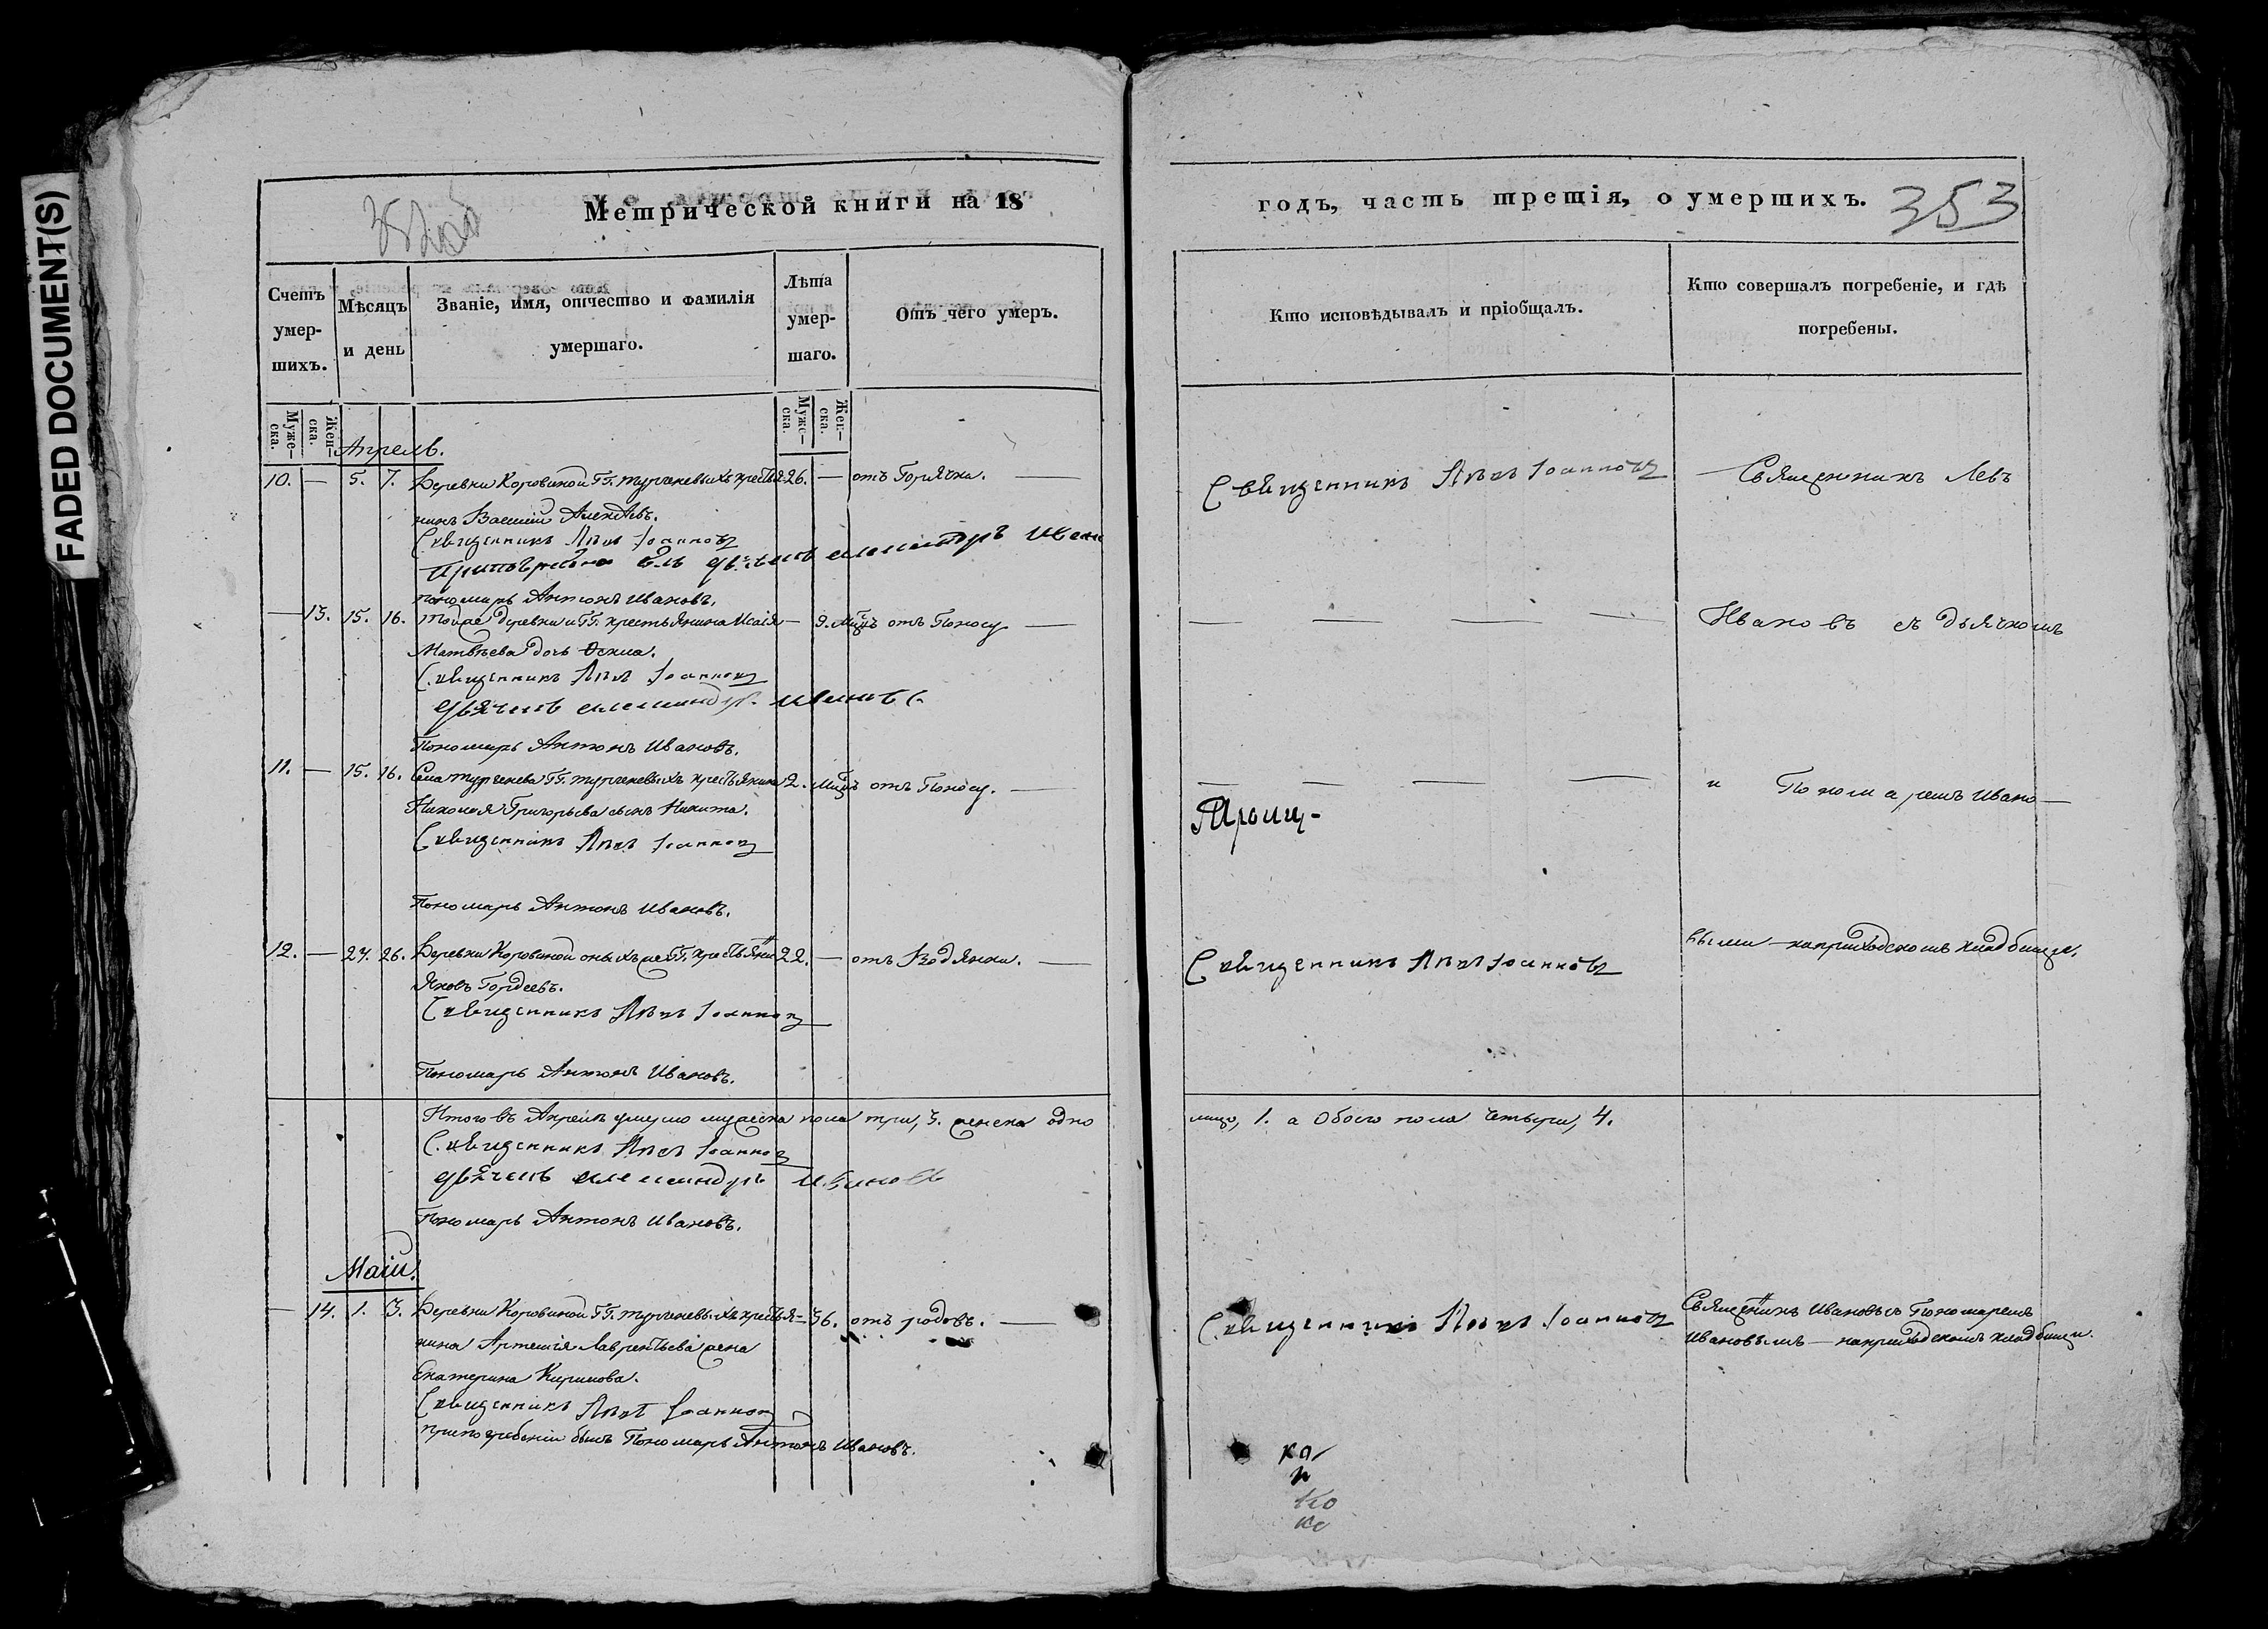 FADED DOCUMENT(S)
Метрической книги на 18
Счетъ умер-шихъ.
Мѣсяцъ и день
Званіе, имя, отчество и фамилія умершаго.
Лѣта умер-шаго.
Отъ чего умеръ.
Муже-ска.
Жен-ска.
Муже-ска.
Жен-ска.
Апрель.
10. — 5. 7. Деревни Коровиной Гг. Тургеневыхъ крестья- 26. — отъ Горячки. —
нинъ Василій
Священникъ Левъ Іоанновъ
Пономарь Антонъ Ивановъ.
— 13. 15. 16. тойже деревни и Гг. крестьянина Исаія — 9. Мцъ отъ Поносу —
Матвѣева дочь
Священникъ Левъ Іоанновъ
дьячекъ александръ ивановъ
Пономарь Антонъ Ивановъ.
11. — 15. 16. Села тургенева Гг. тургеневыхъ крестьянина 2. Мцъ отъ Поносу. —
Николая Григорьева сынъ Никита.
Священникъ Левъ Іоанновъ
Пономарь Антонъ Ивановъ.
12. — 24. 26. Деревни Коровиной оныхъже Гг. крестьянинъ 22. — отъ Водянки. —
Яковъ Гордеевъ.
Священникъ Левъ Іоанновъ
Пономарь Антонъ Ивановъ.
Итого въ Апрелѣ умерло мужеска пола три, 3. женска одно
Священникъ Левъ Іоанновъ
дьячекъ александръ ивановъ
Пономарь Антонъ Ивановъ.
Маій.
— 14. 1. 3. Деревни Коровиной Гг. тургеневыхъ крестья- 36. отъ родовъ. —
нина Артемія Лаврентьева жена
Екатерина Кирилова.
Священникъ Левъ Іоанновъ
припогребеніи былъ Пономарь Антонъ Ивановъ.
годъ, часть третія, о умершихъ.
353
Кто исповѣдывалъ и пріобщалъ.
Кто совершалъ погребеніе, и гдѣ погребены.
Священникъ Левъ Іоанновъ
Священникъ Левъ
— — — —
Ивановъ съ дьячкомъ
— — — —
и Пономаремъ Ивано—
Троиц-
Священникъ Левъ Іоанновъ
выми — наприходскомъ кладбище.
лицо, 1. а Обоего пола четыри, 4.
Священникъ Левъ Іоанновъ
Священникъ Ивановъ съ Пономаремъ
Ивановымъ — наприходскомъ кладбищи.
ка
н
ко
ка